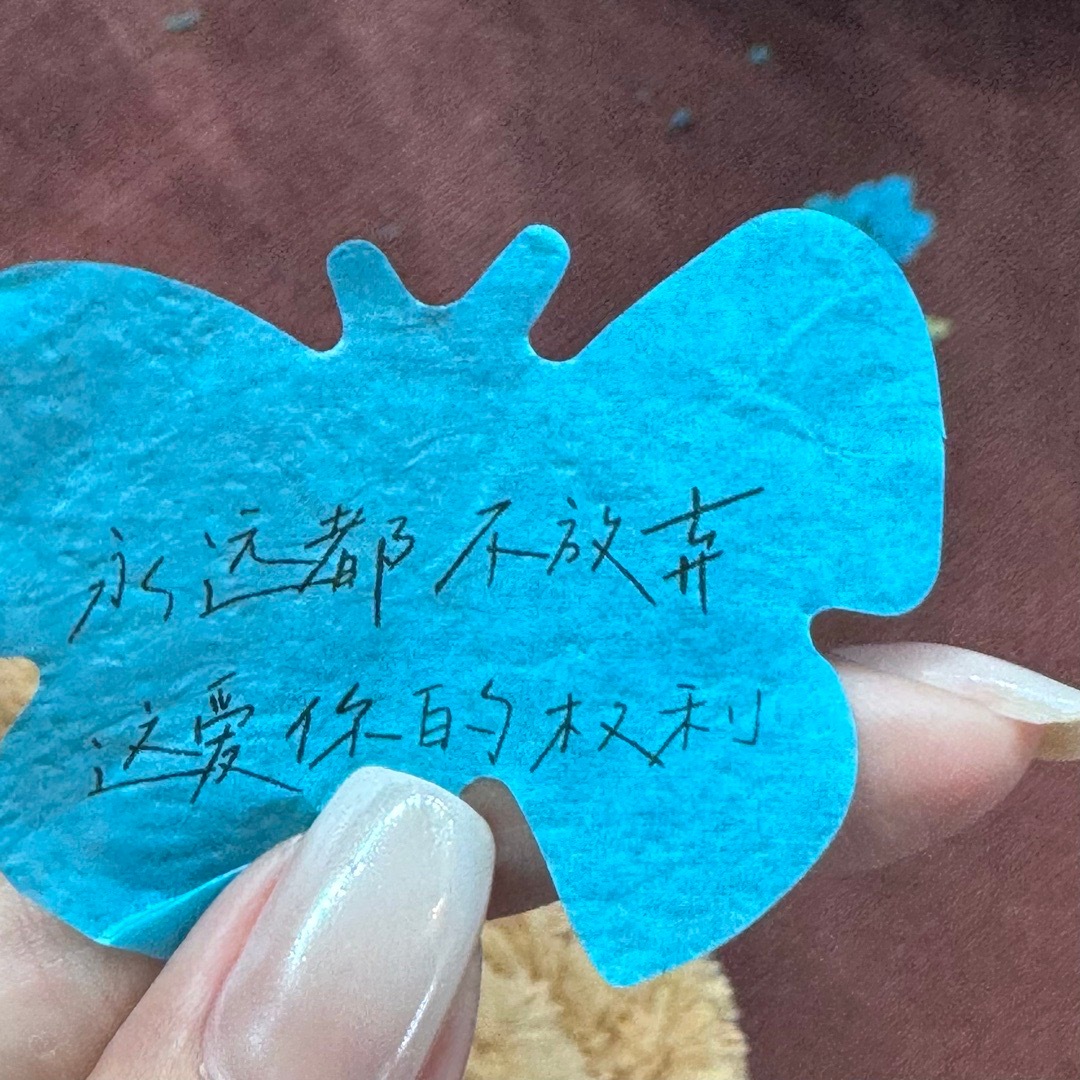 永远都不放弃
这爱你的权利